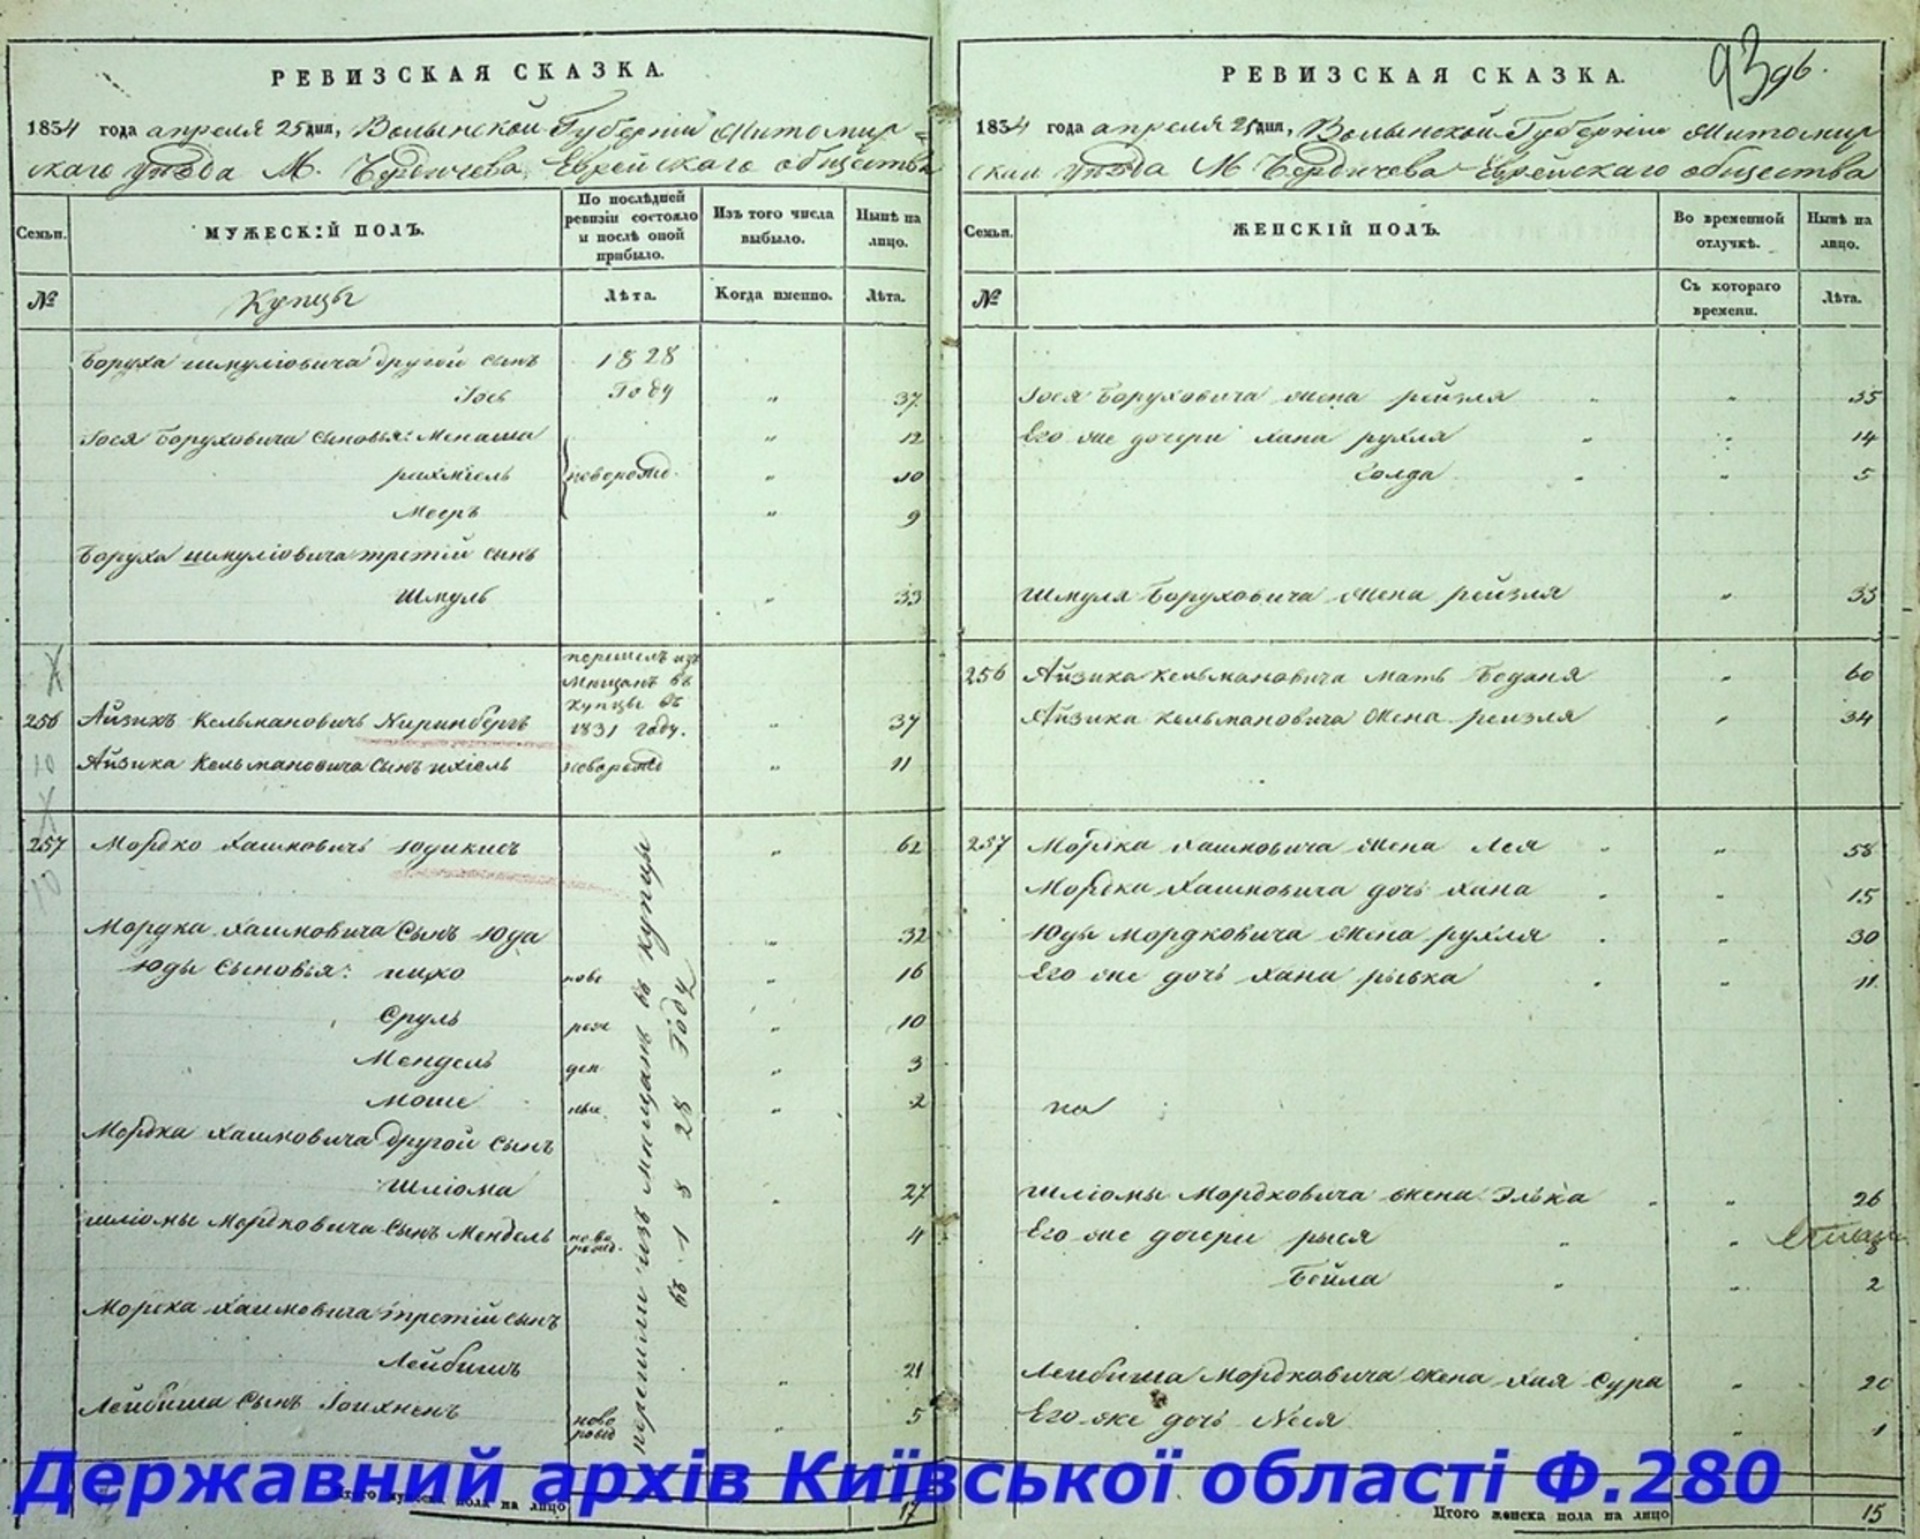 РЕВИЗСКАЯ СКАЗКА.
1834 года апреля 25 дня, Волынской Губерніи Житомир-
скаго уѣзда М. Бердичева Еврейскаго общества
Семьи.
МУЖЕСКІЙ ПОЛЪ.
По послѣдней ревизіи состояло и послѣ оной прибыло.
Изъ того числа выбыло.
Нынѣ на лицо.
№
Купцы
Лѣта.
Когда именно.
Лѣта.
Боруха шмуліовича другой сынъ 1828
Іось Году " 37
Іося Боруховича сыновья: Менаша " 12
рахміель новорожд. " 10
Мееръ " 9
Боруха шмуліовича третій сынъ
Шмуль " 33
перешелъ изъ
мѣщанъ въ
купцы въ
256 Айзикъ Кельмановичъ Ниринбергъ 1831 году. " 37
10 Айзика Кельмановича сынъ ихіель новорожд " 11
257 Мордко Хаимовичъ Юдикисъ " 62
10
Мордка Хаимовича Сынъ Юда " 32
Юды Сыновья: ицко ново " 16
Сруль рож " 10
Мендель ден " 3
Моше ные " 2
Мордка Хаимовича другой Сынъ
Шліома " 27
шліомы Мордковича Сынъ Мендель ново рожд. 4
Мордка Хаимовича третій сынъ
Лейбишъ " 21
Лейбиша Сынъ Іоихненъ ново рожд " 5
перешли изъ мѣщанъ въ купцы
въ 1828 Году
Итого мужеска пола на лицо 17
РЕВИЗСКАЯ СКАЗКА.
93 96.
1834 года апреля 25 дня, Волынской Губерніи Житомир
скаго уѣзда М Бердичева Еврейскаго общества
Семьи.
ЖЕНСКІЙ ПОЛЪ.
Во временной отлучкѣ.
Нынѣ на лицо.
№
Съ котораго времени.
Лѣта.
Іося Боруховича жена рейзля " 35
Его же дочери хана рухля " 14
Голда " 5
Шмуля Боруховича жена рейзля " 33
256 Айзика Кельмановича мать Беданя " 60
Айзика Кельмановича жена рейзля " 34
257 Мордка Хаимовича жена Лея " 58
Мордка Хаимовича дочь Хана " 15
Юды Мордковича жена рухля " 30
Его же дочь хана рывка " 11
Шліомы Мордковича жена Элька " 26
Его же дочери рыся "
Бейла " 2
Лейбиша Мордковича жена Хая Сура " 20
Его же дочь Неся " 1
Итого женска пола на лицо 15
Державний архів Київської області Ф.280